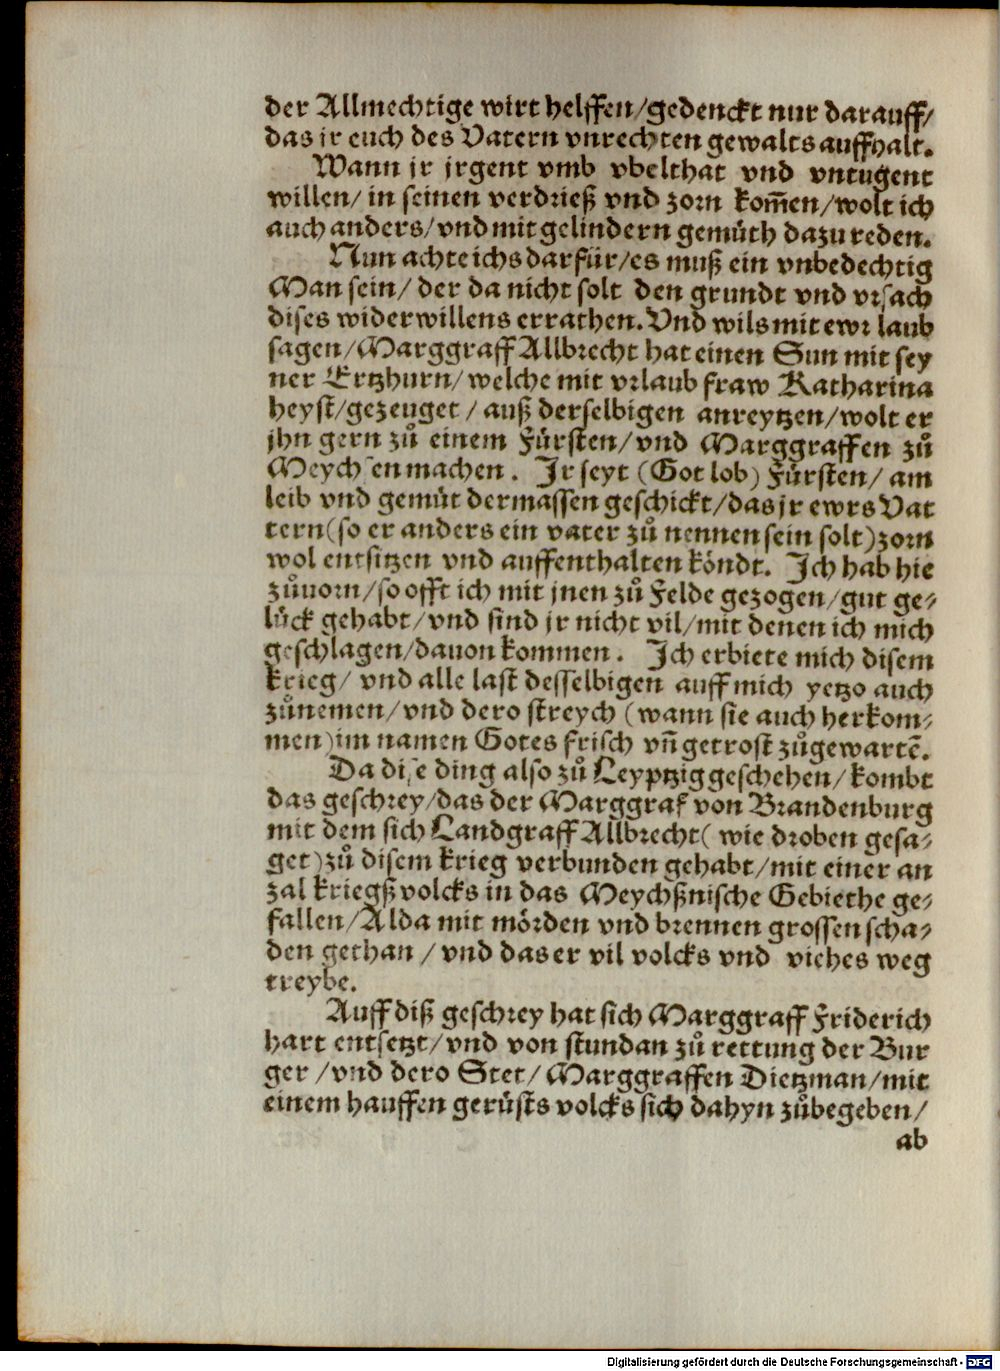 der Allmechtige wirt helffen/gedenckt nur darauff/
das jr euch des Vatern vnrechten gewalts auffhalt.
Wann jr jrgent vmb vbelthat vnd vntugent
willen/ in seinen verdrieß vnd zorn kom̃en/wolt ich
auch anders/vnd mit gelindern gemüth dazu reden.
Nun achte ichs darfür/es muß ein vnbedechtig
Man sein/ der da nicht solt den grundt vnd vrsach
dises widerwillens errathen. Vnd wils mit ewr laub
sagen/Marggraff Allbrecht hat einen Sun mit sey
ner Ertzhurn/welche mit vrlaub fraw Katharina
heyst/gezeuget / auß derselbigen anreytzen/wolt er
jhn gern zů einem Fürsten/vnd Marggraffen zů
Meychsen machen. Jr seyt (Got lob) Fürsten/ am
leib vnd gemüt dermassen geschickt/das jr ewrs Vat
tern(so er anders ein vater zů nennen sein solt)zorn
wol entsitzen vnd auffenthalten köndt. Ich hab hie
zůuorn/so offt ich mit jnen zů Felde gezogen/gut ge⸗
lück gehabt/vnd sind jr nicht vil/mit denen ich mich
geschlagen/dauon kommen. Ich erbiete mich disem
krieg/ vnd alle last desselbigen auff mich yetzo auch
zůnemen/vnd dero streych (wann sie auch herkom⸗
men)im namen Gotes frisch vñ getrost zůgewartẽ.
Da dise ding also zů Leyptzig geschehen/kombt
das geschrey/das der Marggraf von Brandenburg
mit dem sich Landgraff Allbrecht( wie droben gesa⸗
get)zů disem krieg verbunden gehabt/mit einer an
zal kriegßvolcks in das Meychßnische Gebiethe ge⸗
fallen/Alda mit mörden vnd brennen grossen scha⸗
den gethan / vnd das er vil volcks vnd viehes weg
treybe.
Auff diß geschrey hat sich Marggraff Friderich
hart entsetzt/vnd von stundan zů rettung der Bur
ger /vnd dero Stet/ Marggraffen Dietzman/mit
einem hauffen gerüsts volcks sich dahyn zůbegeben/
ab
Digitalisierung gefördert durch die Deutsche Forschungsgemeinschaft - DFG